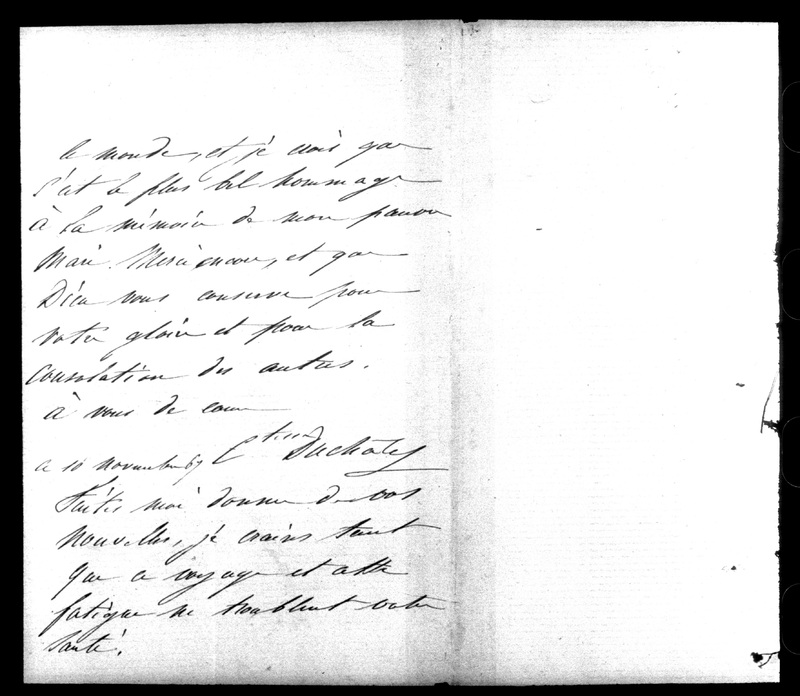 le monde, et je crois que
c'est le plus bel hommage
à la mémoire de mon pauvre
Mari. Merci encore, et que
Dieu vous conserve pour
votre gloire et pour la
consolation des autres.
à vous de cœur
ce 10 novembre 67 Ctesse Duchatel
Faites moi donner de vos
nouvelles, je crains tant
que ce voyage et cette
fatigue ne troublent votre
santé.